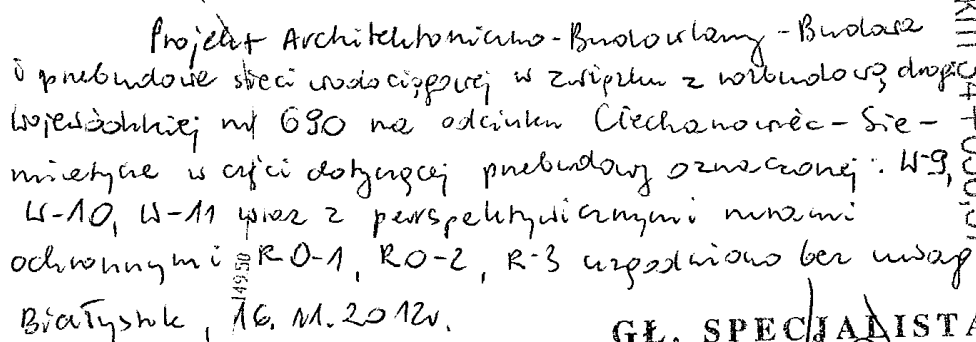 Projekt Architektoniczno-Budowlany - Budowa
i przebudowa sieci wodociągowej w związku z rozbudową drogi
wojewódzkiej nr 690 na odcinku Ciechanowiec - Sie-
miatycze w części dotyczącej przebudowy oznaczonej: W-9,
W-10, W-11 wraz z perspektywicznymi rurami
ochronnymi RO-1, RO-2, R-3 uzgodniono bez uwag
149.50
Białystok, 16.11.2012r.
GŁ. SPECJALISTA